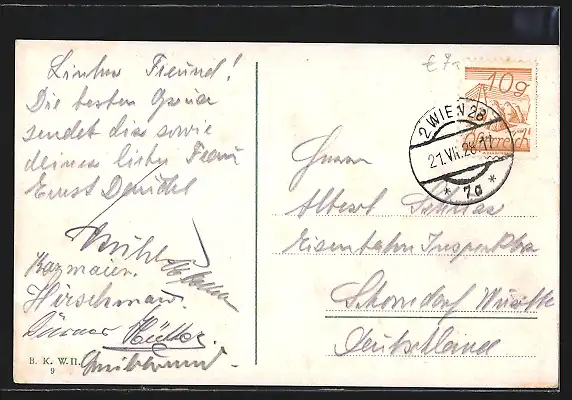 Lieber Freund!
Die besten Grüsse
sendet dir sowie
deiner lieben Frau
Ernst
Kazmaier.
Hirschman
B. K. W. II.
9
10g
Österreich
2 WIEN 28
21.VII.28·11
* 7a *
Herrn
Albert
Eisenbahn Inspektor
Schorndorf Württbg
Deutschland